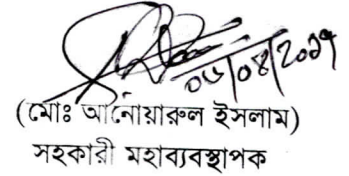 ০৬/০৪/২০১৭
(মোঃ আনোয়ারুল ইসলাম)
সহকারী মহাব্যবস্থাপক